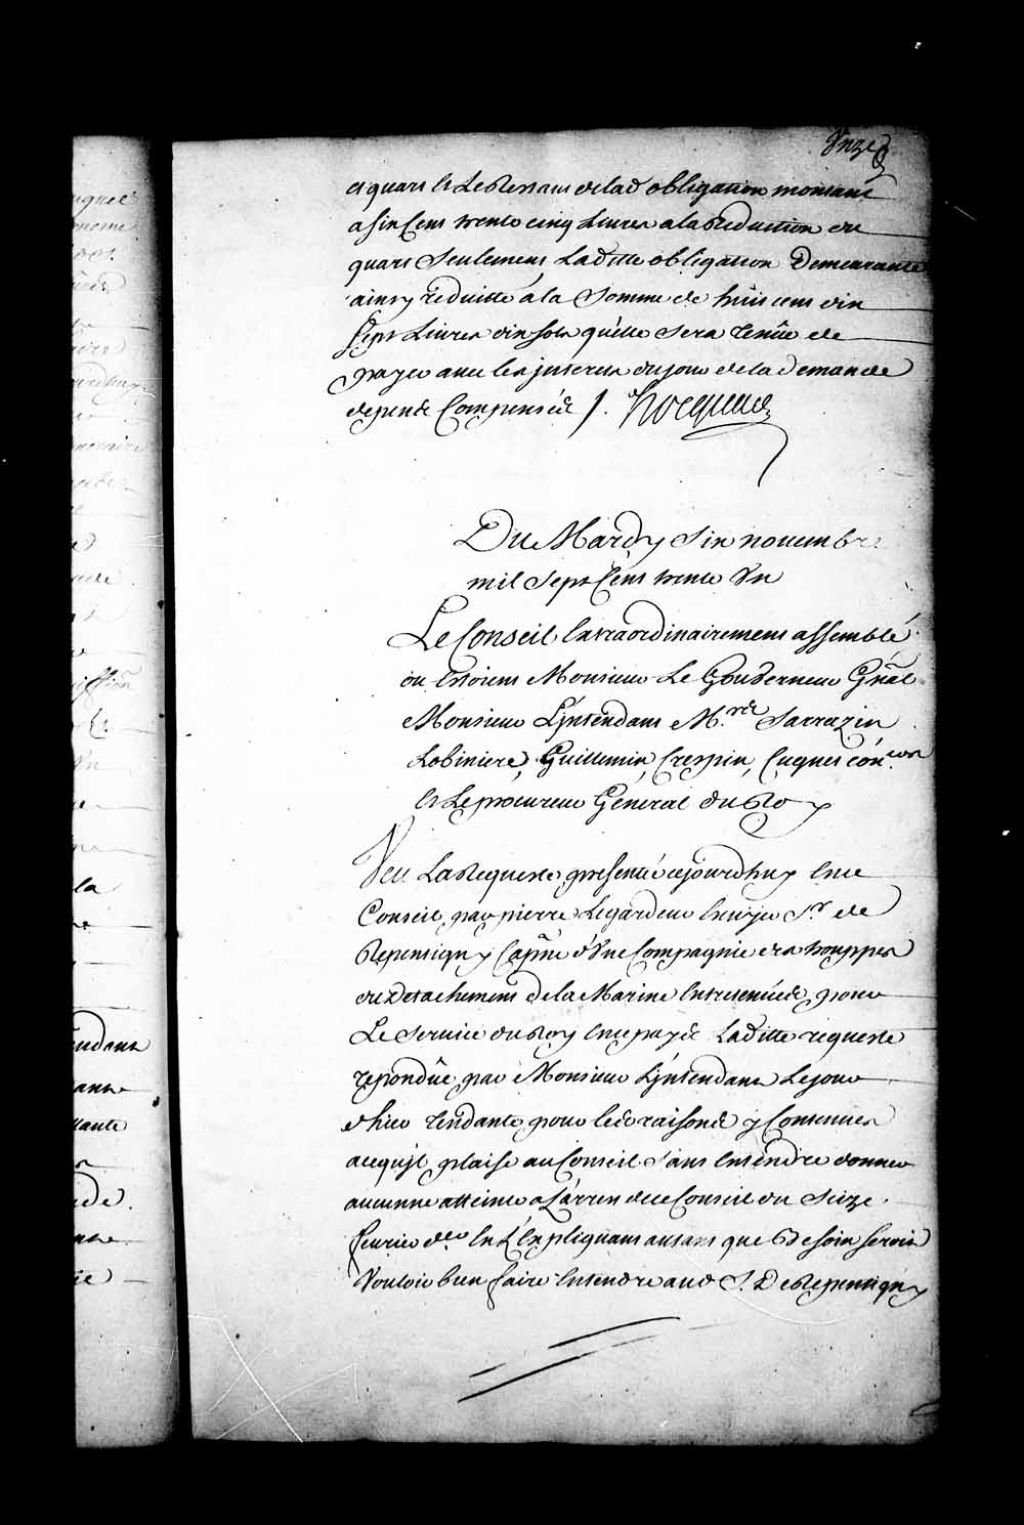 Unze
et quart et Le restant de lad obligation montant
a six Cent trente cinq Livres a la reduction du
quart Seulement Laditte obligation Demeurante
ainsy reduitte a la Somme de huit cent dix
sept Livres dix sols qu'elle Sera tenüe de
payer avec les jnterets du jour de la demande
depends Compensés /. Hocquart
Du Mardy Six novembre
mil Sept Cent trente Un
Le Conseil Extraordinairement assemblé
ou Estoient Monsieur Le Gouverneur Gñal
Monsieur L'jntendant M.rs Sarrazin
Lobiniere, Guillemin, Crespin, Cugnet Con.ers
et Le procureur Géneral du Roy
Veu La Requeste presentée cejourdhuy En ce
Conseil par pierre Legardeur Ecuyer S.r de
Repentigny Capñe d'Une Compagnie des trouppes
du Détachement de la Marine Entretenües pour
Le Service du Roy En ce payis Laditte requeste
repondüe par Monsieur L'jntendant Le jour
d'hier tendante pour les raisons y Contenues
a ce qu'jl plaise au Conseil Sans Entendre donner
aucunne atteinte a L'arrest de ce Conseil du Seize
fevrier d.er En L'Expliquant autant que Besoin Seroit
Vouloir bien faire Entendre aud S. De Repentigny